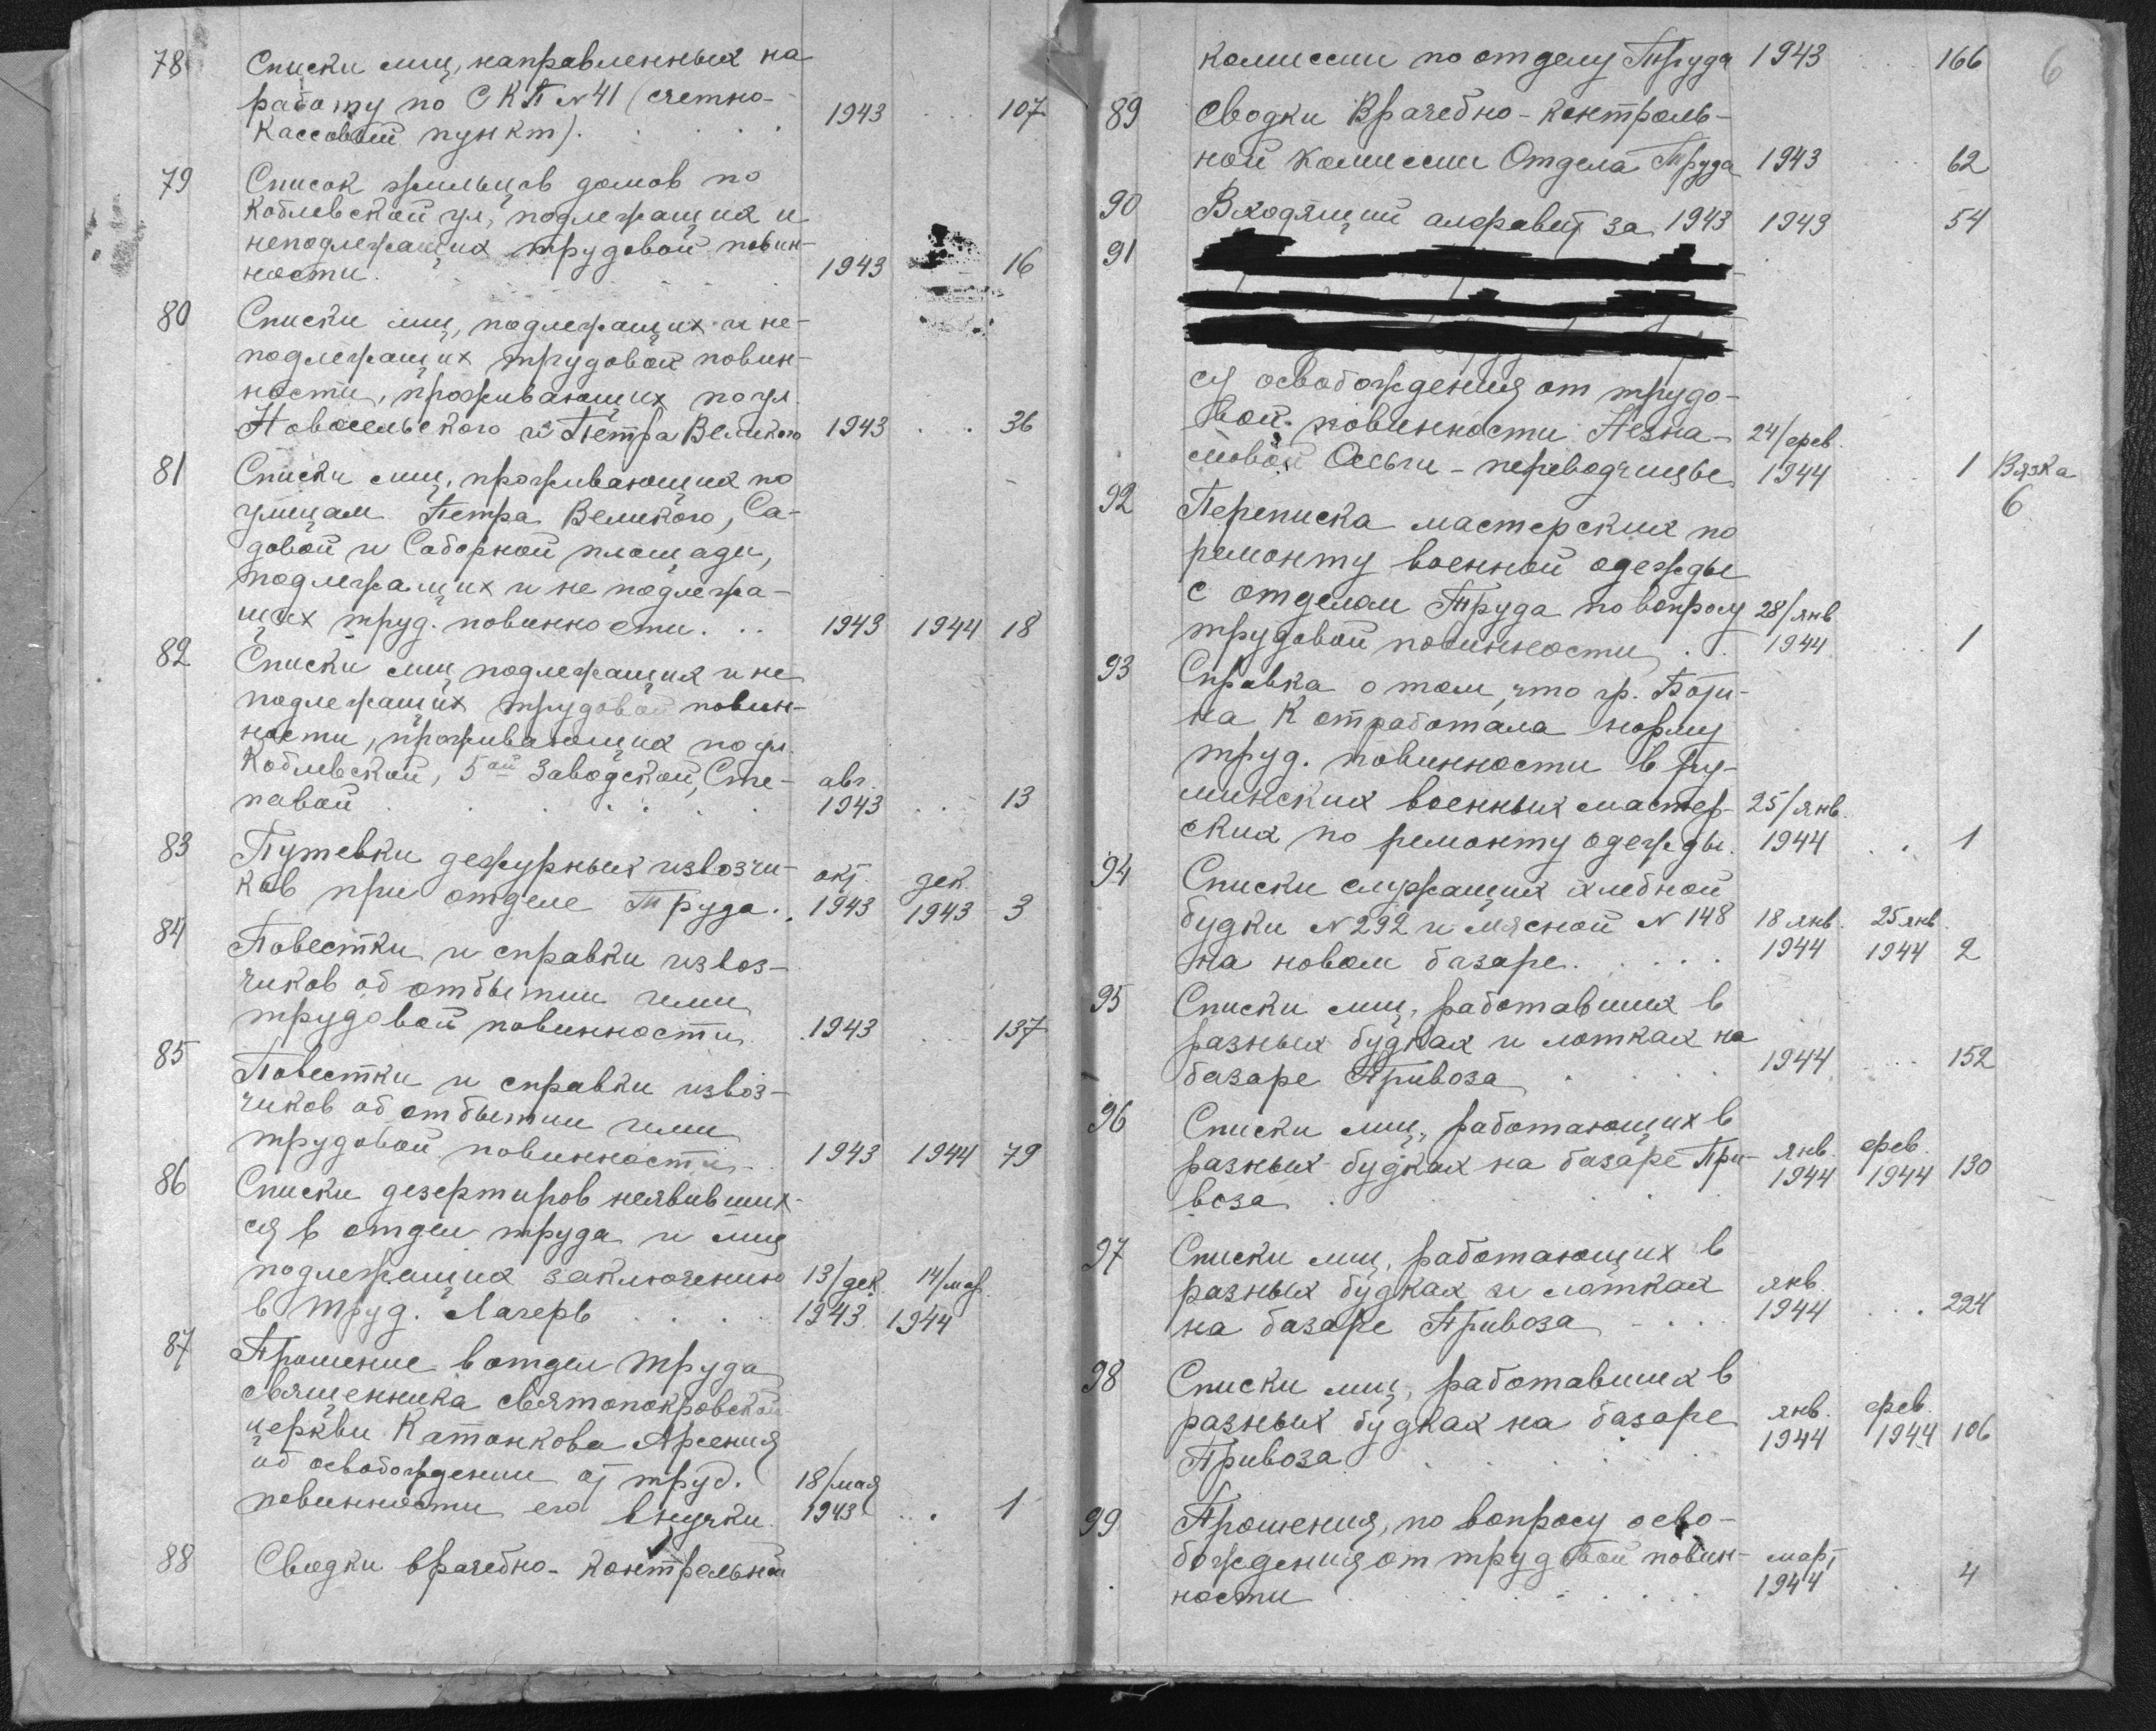 78 Списки лиц, направленных на
работу по СКП №41 (счетно-
кассовый пункт). 1943 107
79 Список жильцов домов по
Коблевской ул, подлежащих и
неподлежащих трудовой повин-
ности. 1943 16
80 Списки лиц, подлежащих и не-
подлежащих трудовой повин-
ности, проживающих по ул.
Новосельского и Петра Великого 1943 36
81 Списки лиц, проживающих по
улицам Петра Великого, Са-
довой и Соборной площади,
подлежащих и не подлежа-
щих труд. повинности. 1943 1944 18
82 Списки лиц подлежащих и не
подлежащих трудовой повин-
ности, проживающих по ул.
Коблевской, 5ой Заводской, Сте- авг.
повой 1943 13
83 Путевки дежурных извозчи- окт. дек.
ков при отделе Труда. 1943 1943 3
84 Повестки и справки извоз-
чиков об отбытии ими
трудовой повинности 1943 137
85 Повестки и справки извоз-
чиков об отбытии ими
трудовой повинности 1943 1944 79
86 Списки дезертиров неявивших-
ся в отдел труда и лиц
подлежащих заключению 13/дек. 14/мар.
в труд. Лагерь 1943 1944
87 Прошение в отдел труда
священника святопокровской
церкви Катонкова Арсения
об освобождении от труд. 18/мая
повинности его внучки. 1943 1
88 Сводки врачебно-контрольной
6
комиссии по отделу Труда 1943 166
89 Сводки Врачебно-контроль-
ной комиссии Отдела Труда 1943 62
90 Входящий алфавит за 1943 1943 54
91
ся освобождения от трудо-
вой повинности Незна- 24/фев.
мовой Ольги - переводчицы 1944 1 Вязка
6
92 Переписка мастерских по
ремонту военной одежды
с отделом Труда по вопросу 28/янв
трудовой повинности 1944 1
93 Справка о том, что гр.
на К отработала норму
труд. повинности в ру-
мынских военных мастер- 25/янв.
ских по ремонту одежды. 1944 1
94 Списки служащих хлебной
будки №292 и мясной №148 18 янв. 25 янв.
на новом базаре. 1944 1944 2
95 Списки лиц, работавших в
разных будках и лотках на
базаре Привоза 1944 152
96 Списки лиц, работающих в
разных будках на базаре При- янв. фев.
воза 1944 1944 130
97 Списки лиц, работающих в
разных будках и лотках янв.
на базаре Привоза 1944 224
98 Списки лиц, работавших в
разных будках на базаре янв. фев.
Привоза 1944 1944 106
99 Прошения, по вопросу осво-
бождения от трудовой повин- март
ности 1944 4